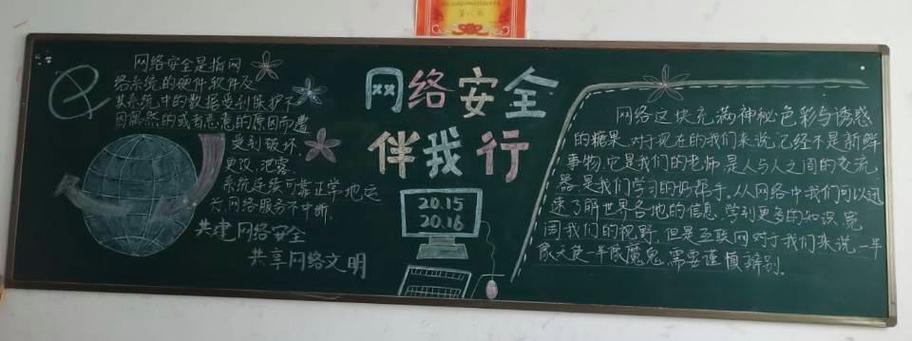 网络安全是指网
络系统的硬件软件及
其系统中的数据受到保护不
因偶然的或者恶意的原因而遭
受到破坏,
更改,泄露,
系统连续可靠正常地运
行,网络服务不中断.
共建网络安全
共享网络文明
网络安全
伴我行
20.15
20.16
网络这块充满神秘色彩与诱惑
的糖果,对于现在的我们来说,已经不是新鲜
事物,它是我们的老师,是人与人之间的交流
器,是我们学习的好帮手,从网络中我们可以迅
速了解世界各地的信息,学到更多的知识,宽
阔我们的视野,但是互联网对于我们来说,一半
像天使一半像魔鬼,需要谨慎辨别.